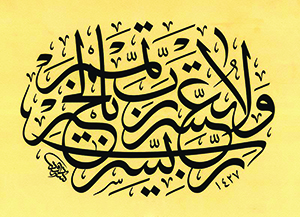 رب يسر
ولا تعسر رب تمم بالخير
١٤٢٧